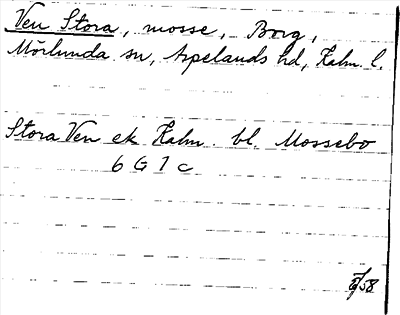 Ven Stora, mosse, Borg,
Mörlunda sn, Aspelands hd, Kalm. l.
Stora Ven ek Kalm. bl. Mossebo
6 G 1 c
58